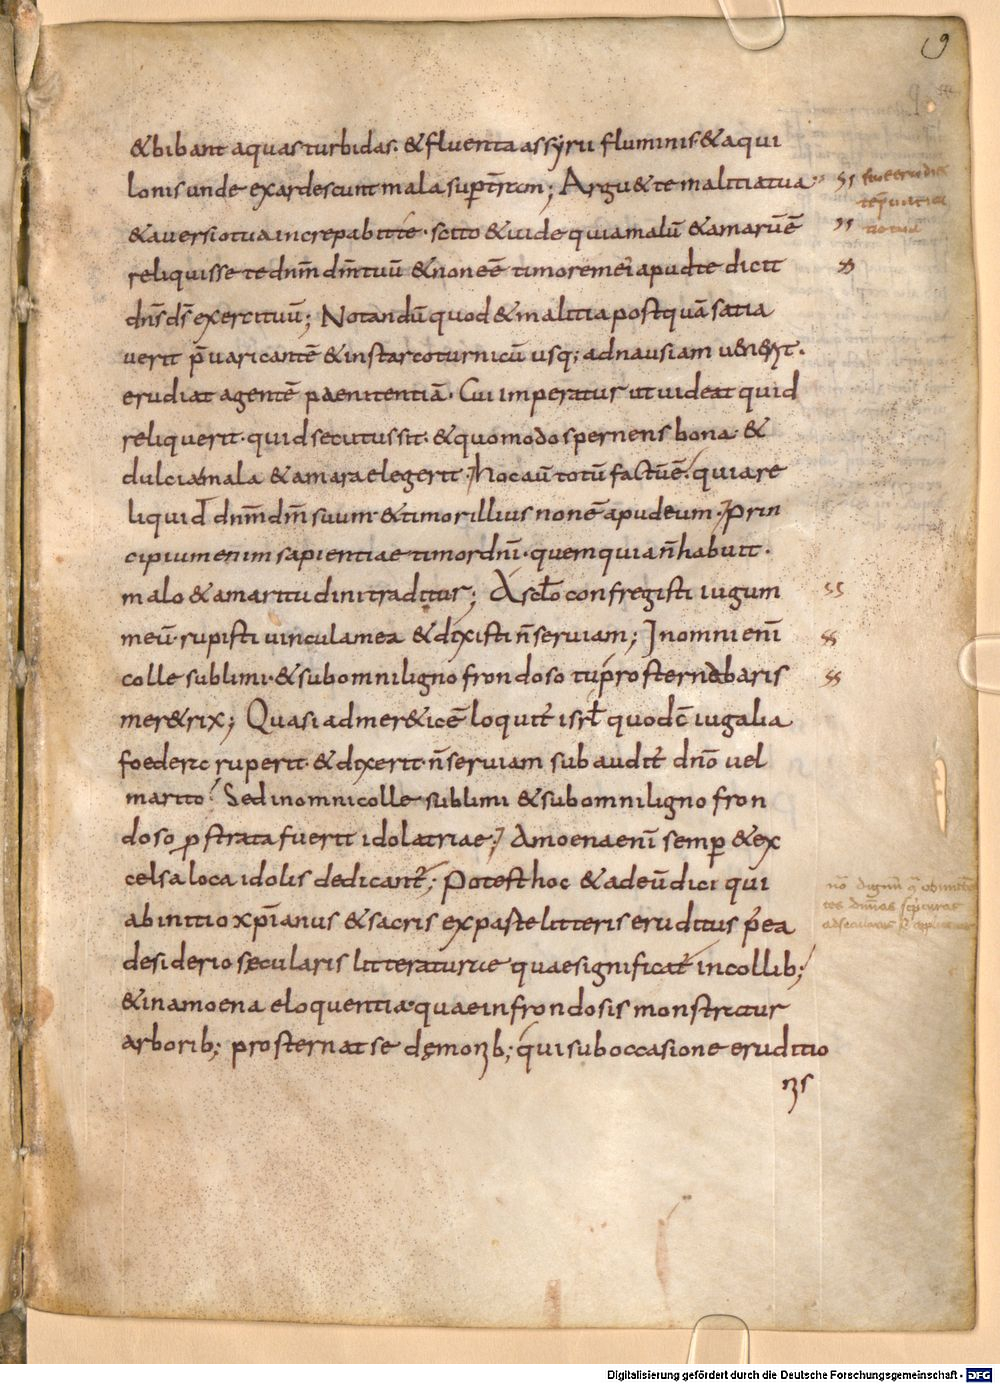 9
& bibant aquas turbidas. & fluenta assyrii fluminis. & aqui
lonis unde exardescunt mala sup t̄rram; Argu& te malitia tua.
& aversio tua increpabit te. scito & uide quia malū & amarū ē
reliquisse te dn̄m dm̄ tuū & non eē timorem ei apud te dicit
dn̄s ds̄ exercituū; Notandū quod & malitia postquā satia
verit p̄uaricantē & instar coturnicū usq; ad nausiam uenerit.
erudiat agentē paenitentiā. Cui imperatur ut uideat quid
reliquerit. quid secutus sit. & quomodo spernens bona. &
dulcia mala & amara elegerit. Hoc aū totū factū ē. quia re
liquid dn̄m dm̄ suum. & timor illius non ē apud eum. Prin
cipium enim sapientiae timor dn̄i. quem quia n̄ habuit.
malo & amaritudini traditur; A sc̄lo confregisti iugum
meū. rupisti uincula mea & dixisti n̄ seruiam; In omni enī
colle sublimi. & sub omni ligno frondoso tu prosternebaris
mer&rix; Quasi ad mer&icē loquit̄ isrł quod c̄iugalia
foedere ruperit. & dixerit. n̄ seruiam subaudit̄ dn̄o uel
marito. Sed in omni colle sublimi & sub omni ligno fron
doso p strata fuerit idolatriae; Amoena enī semp & ex
celsa loca idolis dedicant̄; Potest hoc & ad eū dici qui
ab initio xp̄ianus & sacris ex paste litteris eruditus p̄ea
desiderio sęcularis litteraturae quae significat̄ in collib;
& in amoena eloquentia. quae in frondosis monstratur
arborib; prosternat se dęmonib; qui sub occasione eruditio
nis
Digitalisierung gefördert durch die Deutsche Forschungsgemeinschaft - DFG